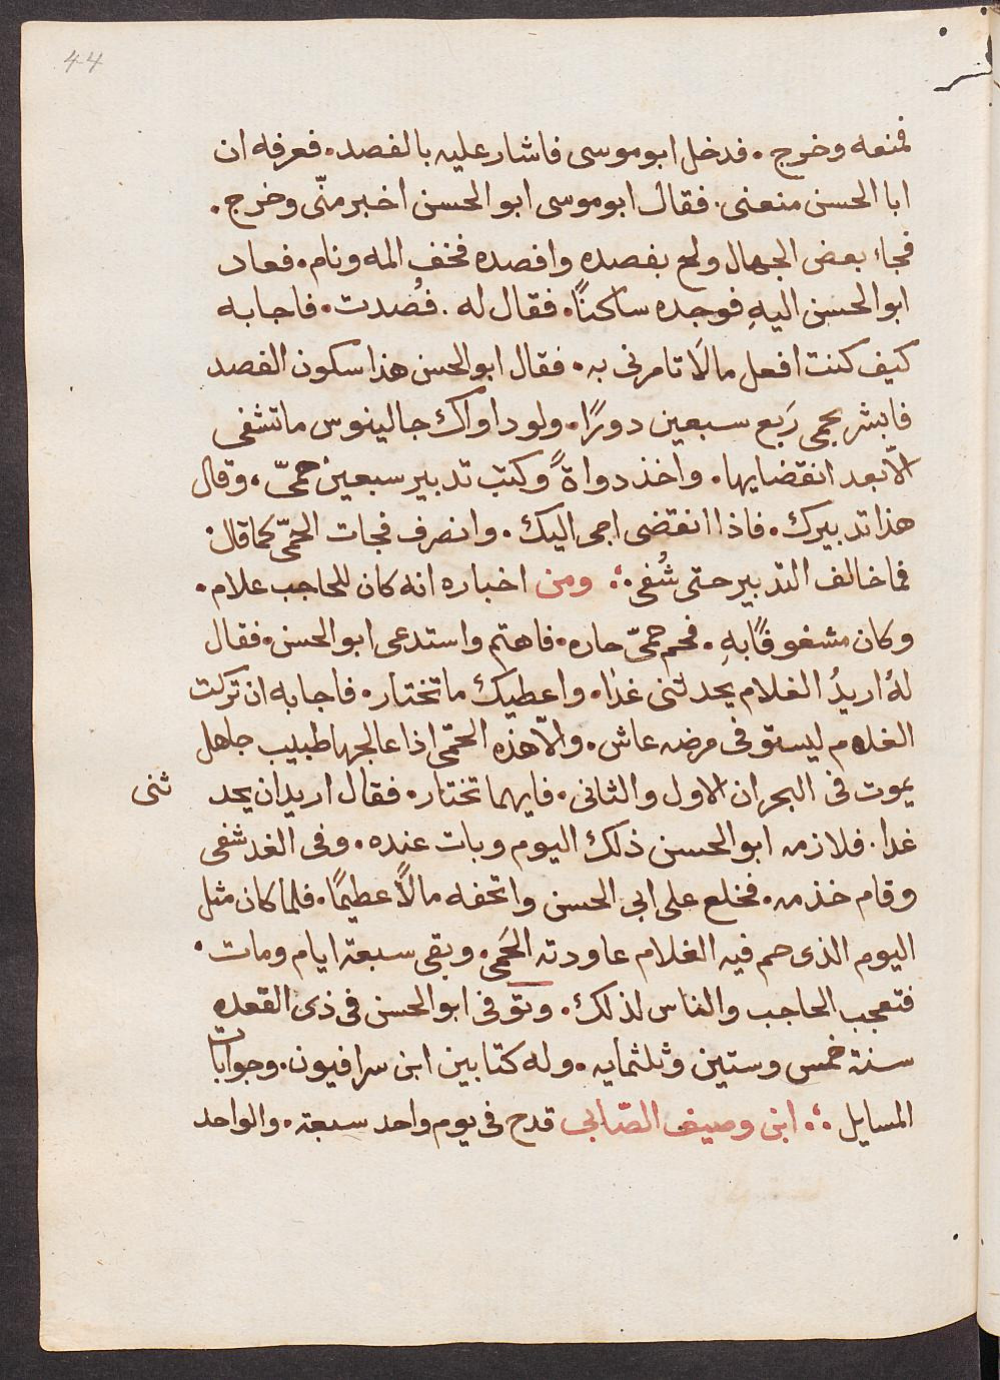 44
فمنعه وخرج . فدخل ابو موسى فاشار عليه بالفصد . فعرفه ان
ابا الحسن منعنى . فقال ابو موسى ابو الحسن اخبر منّى وخرج .
فجاء بعض الجهال ولح بفصده وافصده فخف المه ونام . فعاد
ابو الحسن اليهِ فوجده ساكنًا . فقال له . فُصدت . فاجابه
كيف كنت افعل مالَا تامرنى به . فقال ابو الحسن هذا سكون الفصد
فابشر بحمى رَبع سبعين دورًا . ولو داواك جالينوس ما تشفى
الّا بعد انقضايها . واخذ دواةً وكتب تدبير سبعين حمىّ ، وقال
هذا تدبيرك . فاذا انقضى اجى اليك . وانصرف فجات الحمىّ كما قال
فما خالف التدبير حتى شُفى ؞ ومن اخباره انه كان للحاجب غلام .
وكان مشغوفًا بهِ . فحم حمىّ حاره . فاهتم واستدعى ابو الحسن . فقال
لهُ اريدُ الغلام يحدثنى غدًا . واعطيك ما تختار . فاجابه ان تركت
الغلام ليستوفى مرضه عاش . والّا هذه الحمّى اذا عالجها طبيب جاهل
يموت فى البحران الاول والثانى . فايهما تختار . فقال اريد ان يحد ثنى
غدا . فلازمه ابو الحسن ذلك اليوم وبات عنده . وفى الغد شفى
وقام خذمه . فخلع على ابى الحسن واتحفه مالًا عظيمًا . فلما كان مثل
اليوم الذى حم فيه الغلام عاودته الحَمى . وبقى سبعة ايام ومات .
فتعجب الحاجب والناس لذلك . وتوفى ابو الحسن فى ذى القعده
سنة خمس وستين وثلثمايه . وله كتابين ابن سرافيون . وجوابات
المسايل ؞ ابن وصيف الصّابى قدح فى يوم واحد سبعة . والواحد